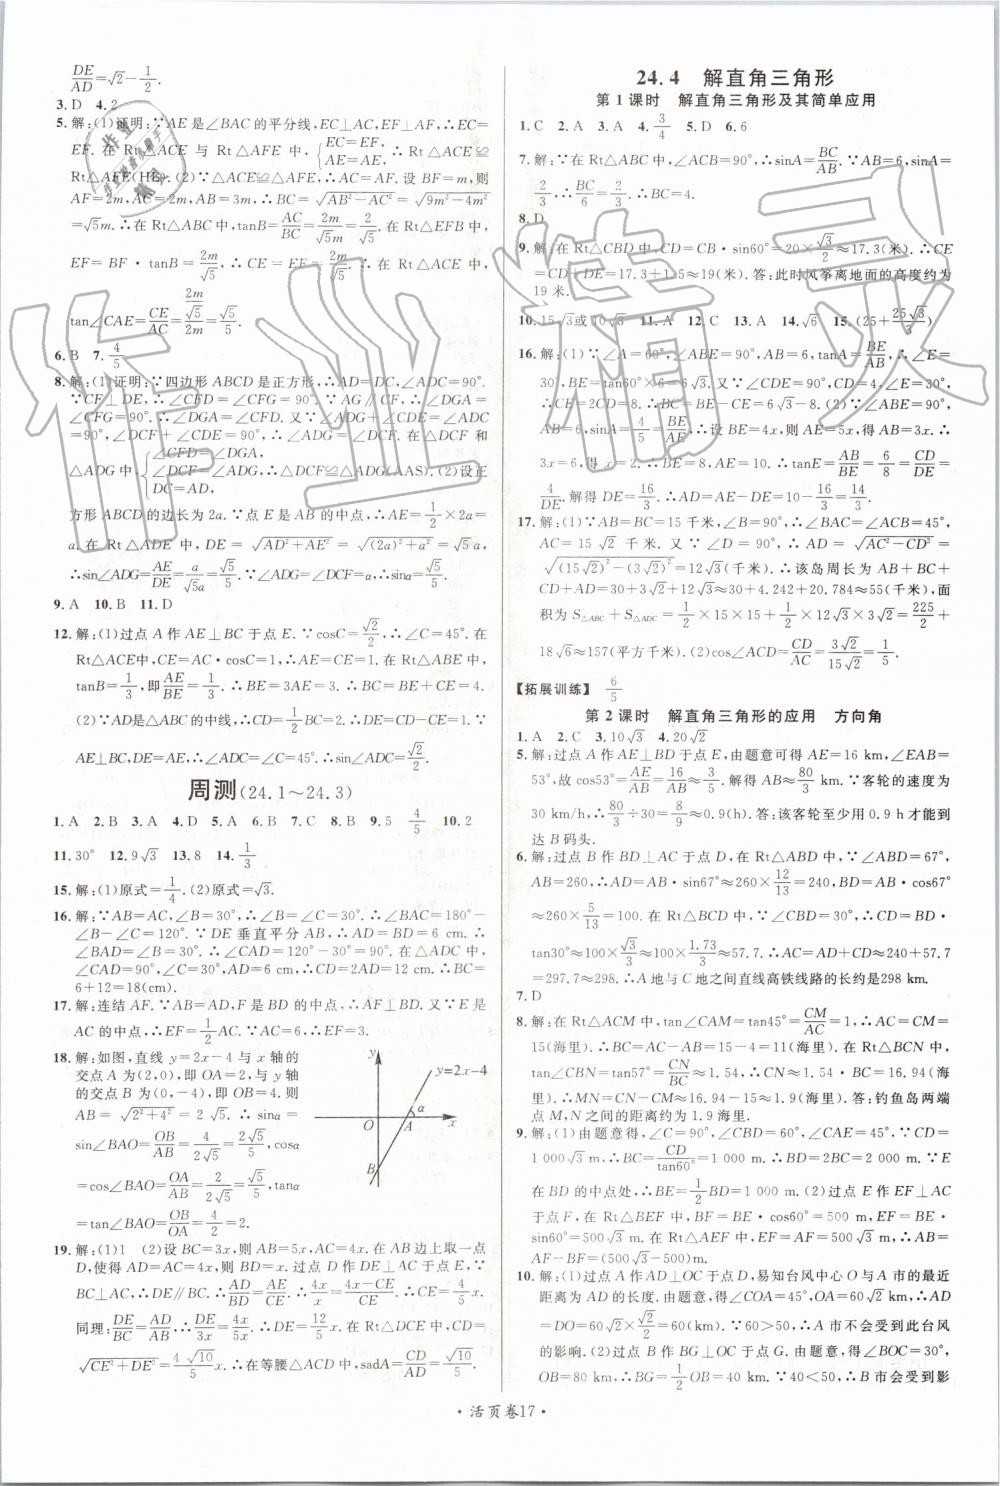 DE/AD=√2-1/2.
3.D 4.2
5.解:(1)证明:∵AE是∠BAC的平分线,EC⊥AC,EF⊥AF,∴EC=
EF.在Rt△ACE与Rt△AFE中,{EC=EF, AE=AE,∴Rt△ACE≌Rt
△AFE(HL).(2)∵△ACE≌△AFE,∴AC=AF.设BF=m,则
AF=2m,AC=2m,AB=3m,∴BC=√(AB²-AC²)=√(9m²-4m²)
=√5m.∴在Rt△ABC中,tanB=AC/BC=2m/(√5m)=2/√5.∴在Rt△EFB中,
EF=BF·tanB=2m/√5,∴CE=EF=2m/√5.∴在Rt△ACE中,
tan∠CAE=CE/AC=(2m/√5)/2m=√5/5.
6.B 7.4/5
8.解:(1)证明:∵四边形ABCD是正方形,∴AD=DC,∠ADC=90°.
∵CF⊥DE,∴∠CFD=∠CFG=90°.∵AG∥CF,∴∠DGA=
∠CFG=90°.∴∠DGA=∠CFD.又∵∠ADG+∠CDE=∠ADC
=90°,∠DCF+∠CDE=90°,∴∠ADG=∠DCF.在△DCF和
△ADG中,{∠CFD=∠DGA, ∠DCF=∠ADG, DC=AD,∴△DCF≌△ADG(AAS).(2)设正
方形ABCD的边长为2a.∵点E是AB的中点,∴AE=1/2×2a=
a.在Rt△ADE中,DE=√(AD²+AE²)=√((2a)²+a²)=√5a,
∴sin∠ADG=AE/DE=a/(√5a)=√5/5.∵∠ADG=∠DCF=∴sin∠DCF=√5/5.
9.A 10.B 11.D
12.解:(1)过点A作AE⊥BC于点E.∵cosC=√2/2,∴∠C=45°.在
Rt△ACE中,CE=AC·cosC=1,∴AE=CE=1.在Rt△ABE中,
tanB=1/3,即AE/BE=1/3.∴BE=3AE=3.∴BC=BE+CE=4.
(2)∵AD是△ABC的中线,∴CD=1/2BC=2.∴DE=CD-CE=1.∵
AE⊥BC,DE=AE,∴∠ADC=45°.∴sin∠ADC=√2/2.
周测(24.1~24.3)
1.A 2.B 3.A 4.D 5.A 6.B 7.C 8.B 9.5 4/5 10.2
11.30° 12.9√3 13.8 14.1/3
15.解:(1)原式=1/4.(2)原式=√3.
16.解:∵AB=AC,∠B=30°,∴∠B=∠C=30°.∴∠BAC=180°-
∠B-∠C=120°.∵DE垂直平分AB,∴AD=BD=6 cm.∴
∠BAD=∠B=30°.∴∠CAD=120°-30°=90°.在△ADC中,
∠CAD=90°,∠C=30°,AD=6 cm,∴CD=2AD=12 cm.∴BC=
6+12=18(cm).
17.解:连结AF.∵AB=AD,F是BD的中点,∴AF⊥BD.又∵E是
AC的中点,∴EF=1/2AC.∵EF=2,∴AC=4.
18.解:如图,直线y=2x-4与x轴的
交点A为(2,0),即OA=2,与y轴
的交点B为(0,-4),即OB=4.则
AB=√(2²+4²)=2√5.∴sinα=
sin∠BAO=OB/AB=4/(2√5)=2√5/5,cosα
=cos∠BAO=OA/AB=2/(2√5)=√5/5,tanα
=tan∠BAO=OB/OA=4/2=2.
y
y=2x-4
α
O A x
B
19.解:(1)1 (2)设BC=3x,则AB=5x,AC=4x.在AB上取一点
D,使得BD=BC,过点D作DE⊥AC于点E,则BD=3x.∵
BC⊥AC,∴DE∥BC.∴AD/BD=AE/CE.∴4x/x=(4x-CE)/CE.∴CE=4/5x.
同理:DE/BC=AD/AB,∴DE/3x=4x/5x.∴DE=12/5x.在Rt△DCE中,CD=
√(CE²+DE²)=4√10/5x.∴在等腰△ACD中,sadA=CD/AD=√10/5.
24.4 解直角三角形
第1课时 解直角三角形及其简单应用
1.C 2.A 3.A 4.3/4 5.D 6.6
7.解:∵在Rt△ABC中,∠ACB=90°,∴sinA=BC/AB.∵AB=6,sinA=
2/3,∴BC/6=2/3.∴BC=4.
8.D
9.解:在Rt△CBD中,CD=CB·sin60°=20×√3/2≈17.3(米).∴CE
=CD+DE=17.3+1.5≈19(米).答:此时风筝离地面的高度约为
19米.
10.15√3或10√3 11.A 12.C 13.A 14.√6 15.(25+25√3/3)
16.解:(1)∵∠A=60°,∠ABE=90°,AB=6,tanA=BE/AB,∴∠E=
30°,BE=tan60°×6=6√3.又∵∠CDE=90°,CD=4,∠E=30°,
∴CE=2CD=8.∴BC=BE-CE=6√3-8.(2)∵∠ABE=90°,AB
=6,sinA=4/5=BE/AE,∴设BE=4x,则AE=5x.得AB=3x.∴
3x=6,得x=2.∴BE=8,AE=10.∴tanE=AB/BE=6/8=CD/DE=
4/DE.解得DE=16/3.∴AD=AE-DE=10-16/3=14/3.
17.解:(1)∵AB=BC=15千米,∠B=90°,∴∠BAC=∠ACB=45°,
AC=15√2千米.又∵∠D=90°,∴AD=√(AC²-CD²)=
√((15√2)²-(3√2)²)=12√3(千米).∴该岛周长为AB+BC+
CD+AD=30+3√2+12√3≈30+4.242+20.784≈55(千米),面
积为S△ABC+S△ADC=1/2×15×15+1/2×12√3×3√2=225/2+
18√6≈157(平方千米).(2)cos∠ACD=CD/AC=3√2/15√2=1/5.
【拓展训练】 6/5
第2课时 解直角三角形的应用 方向角
1.A 2.C 3.10√3 4.20√2
5.解:过点A作AE⊥BD于点E,由题意可得AE=16 km,∠EAB=
53°,故cos53°=AE/AB=16/AB≈3/5.解得AB≈80/3 km.∵客轮的速度为
30 km/h,∴80/3÷30=8/9≈0.9(h).答:该客轮至少用0.9 h才能到
达B码头.
6.解:过点B作BD⊥AC于点D,在Rt△ABD中,∵∠ABD=67°,
AB=260,∴AD=AB·sin67°≈260×12/13=240,BD=AB·cos67°
≈260×5/13=100.在Rt△BCD中,∵∠CBD=30°,∴CD=BD·
tan30°≈100×√3/3≈100×1.73/3≈57.7.∴AC=AD+CD≈240+57.7
=297.7≈298.∴A地与C地之间直线高铁线路的长约是298 km.
7.D
8.解:在Rt△ACM中,tan∠CAM=tan45°=CM/AC=1,∴AC=CM=
15(海里).∴BC=AC-AB=15-4=11(海里).在Rt△BCN中,
tan∠CBN=tan57°=CN/BC≈1.54,∴CN=1.54×BC=16.94(海
里).∴MN=CN-CM≈16.94-15≈1.9(海里).答:钓鱼岛两端
点M,N之间的距离约为1.9海里.
9.解:(1)由题意得,∠C=90°,∠CBD=60°,∠CAE=45°.∵CD=
1 000√3 m,∴BC=CD/tan60°=1 000 m.∴BD=2BC=2 000 m.∵E
在BD的中点处,∴BE=1/2BD=1 000 m.(2)过点E作EF⊥AC
于点F,在Rt△BEF中,BF=BE·cos60°=500 m,EF=BE·
sin60°=500√3 m,在Rt△AEF中,AF=EF=500√3 m,∴AB=
AF-BF=(500√3-500)m.
10.解:(1)过点A作AD⊥OC于点D,易知台风中心O与A市的最近
距离为AD的长度.由题意得,∠COA=45°,OA=60√2 km,∴AD
=DO=60√2÷√2=60(km).∵60>50,∴A市不会受到此台风
的影响.(2)过点B作BG⊥OC于点G.由题意得,∠BOC=30°,
OB=80 km,∴BG=1/2OB=40 km.∵40<50,∴B市会受到影
·活页卷17·
作业精灵